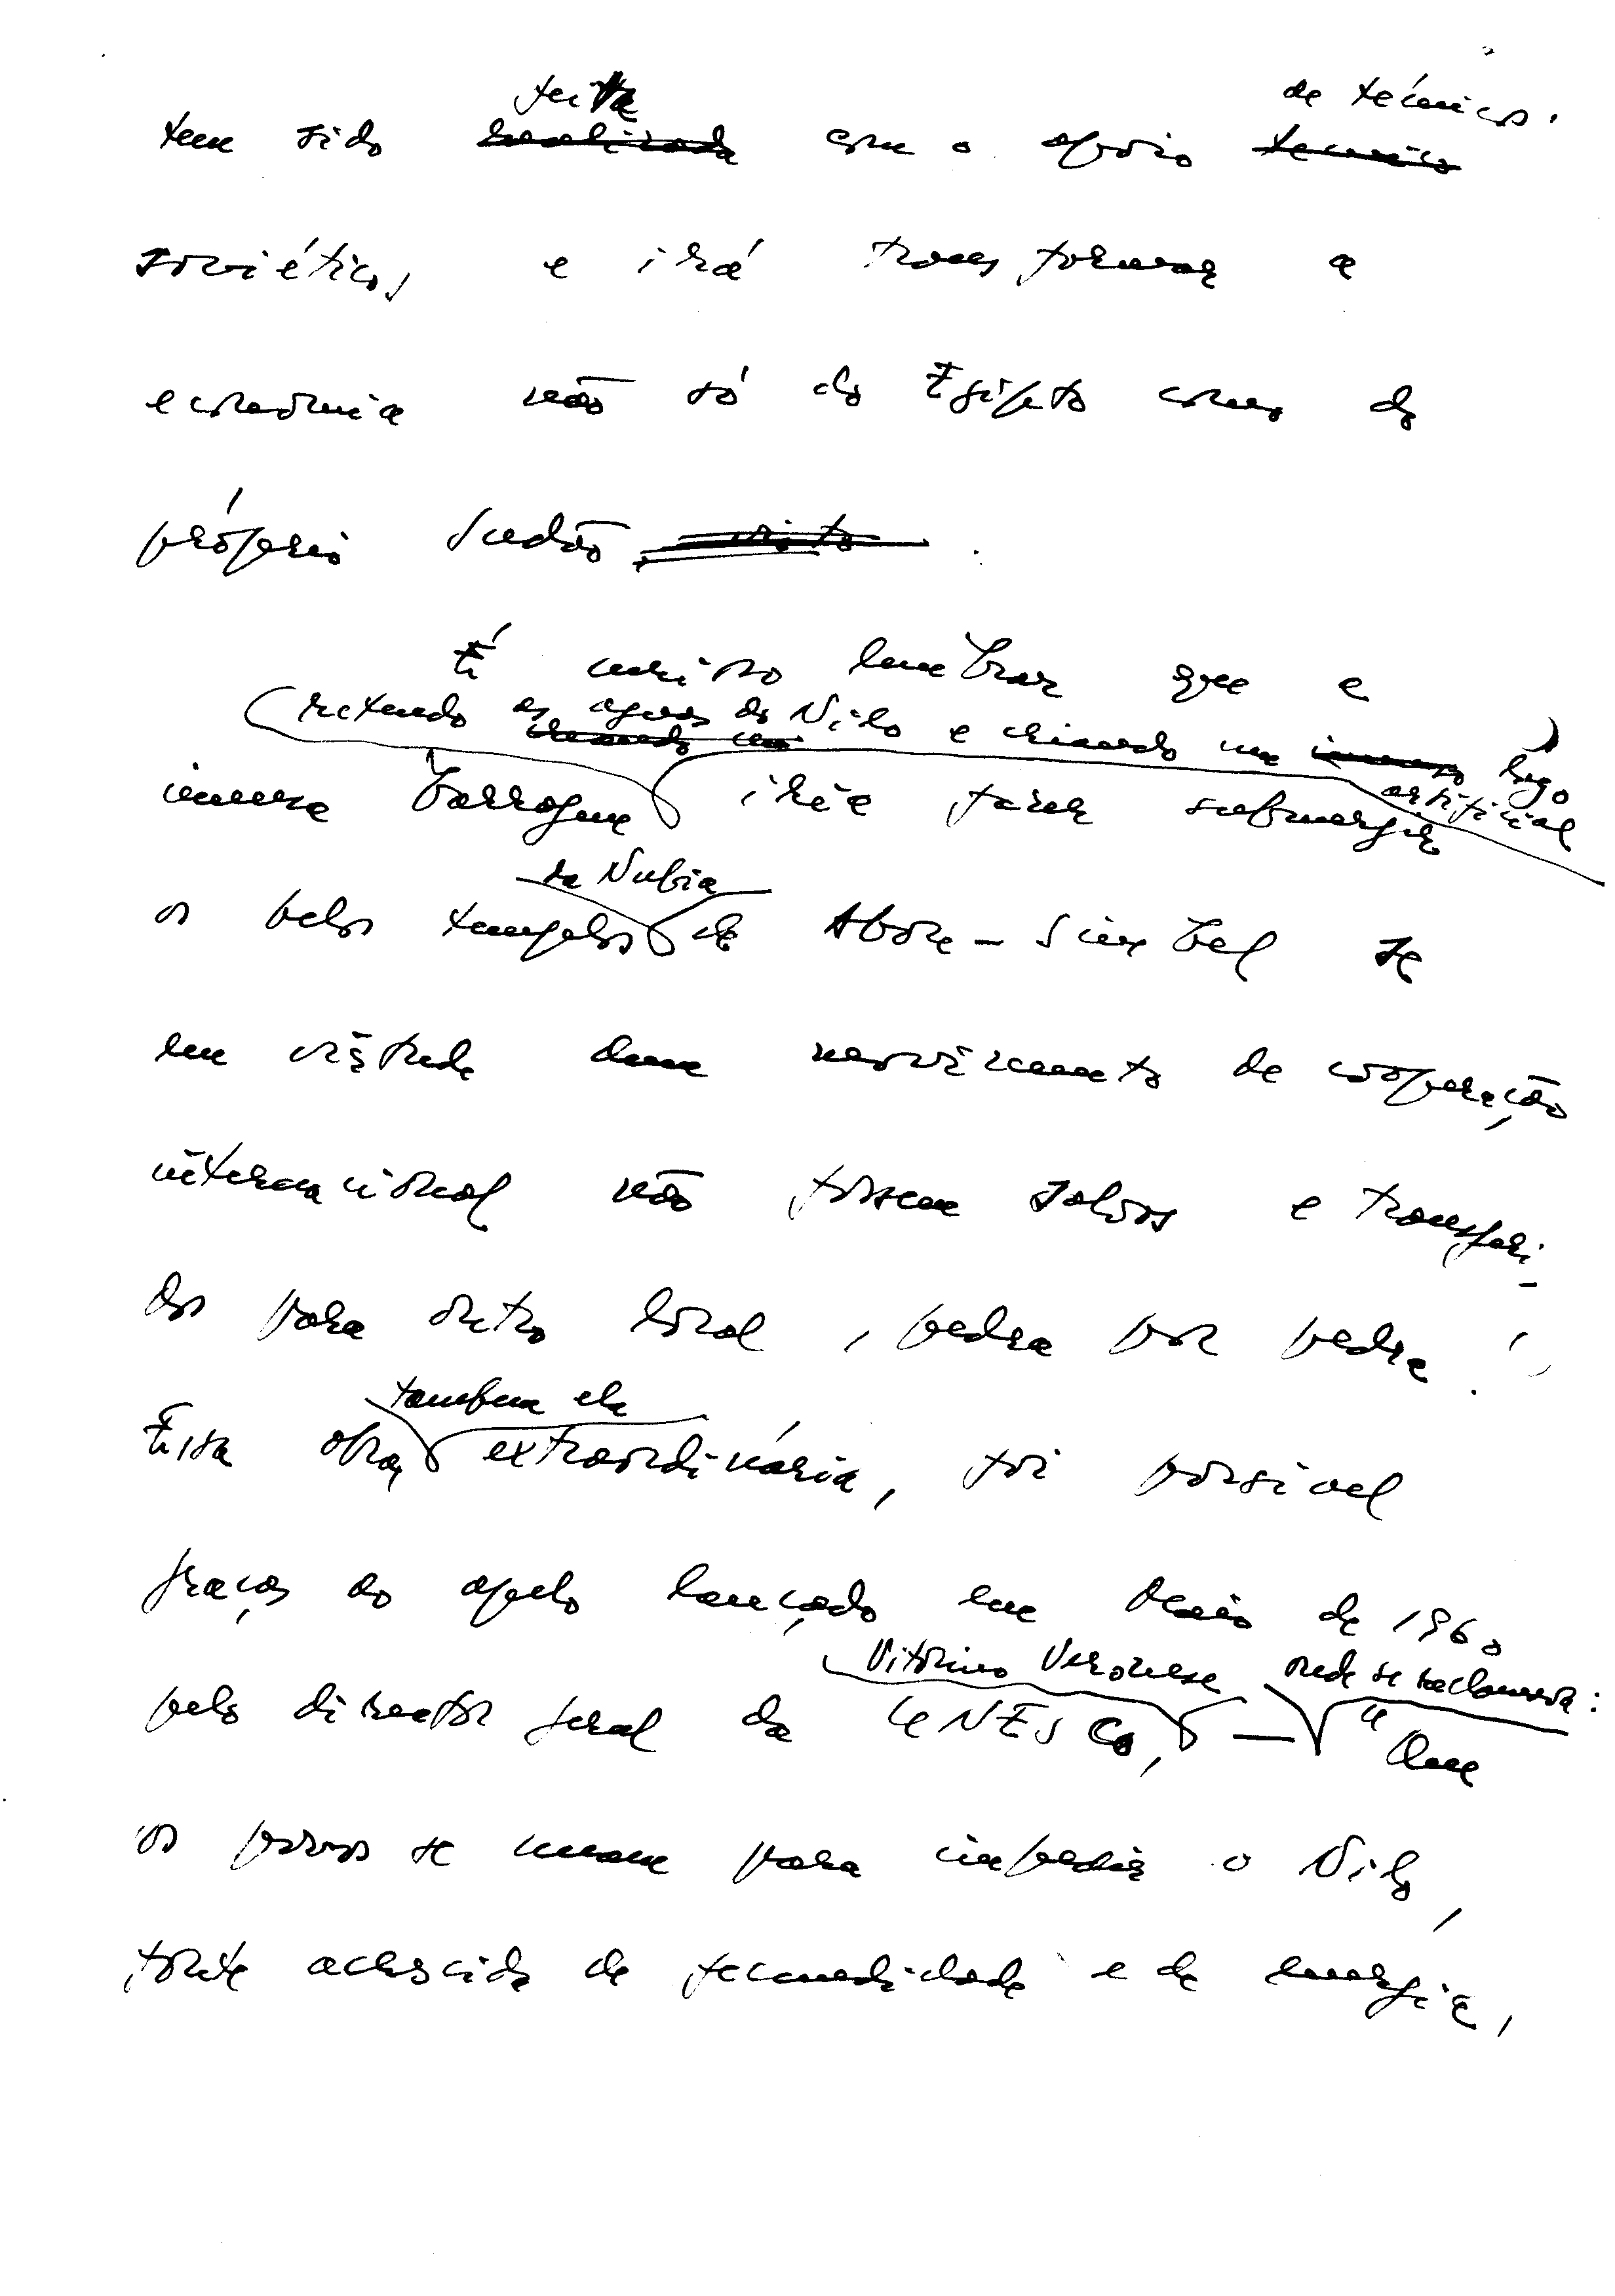 feita de técnicos
tem sido realizada com o apoio tecnico
soviéticos e irá transformar a
economia não só do Egipto como do
próprio Sudão, visto .
É preciso lembrar que a
retendo as aguas do Nilo e criando um imenso lago
artificial
imensa barragem iria fazer submergir
da Nubia
os belos templos de Abou-Simbel se
em virtude dum movimento de cooperação
internacional não fossem salvos e transferi-
dos para outro local, pedra por pedra.
tambem ela
Essa obra, extraordinária, foi possivel
graças ao apelo lançado em Março de 1960
Vitorino Veronese onde se reclamava:
pelo director geral da UNESCO, — "Que
os povos se unam para impedir o Nilo,
fonte acrescida de fecundidade e de energia,